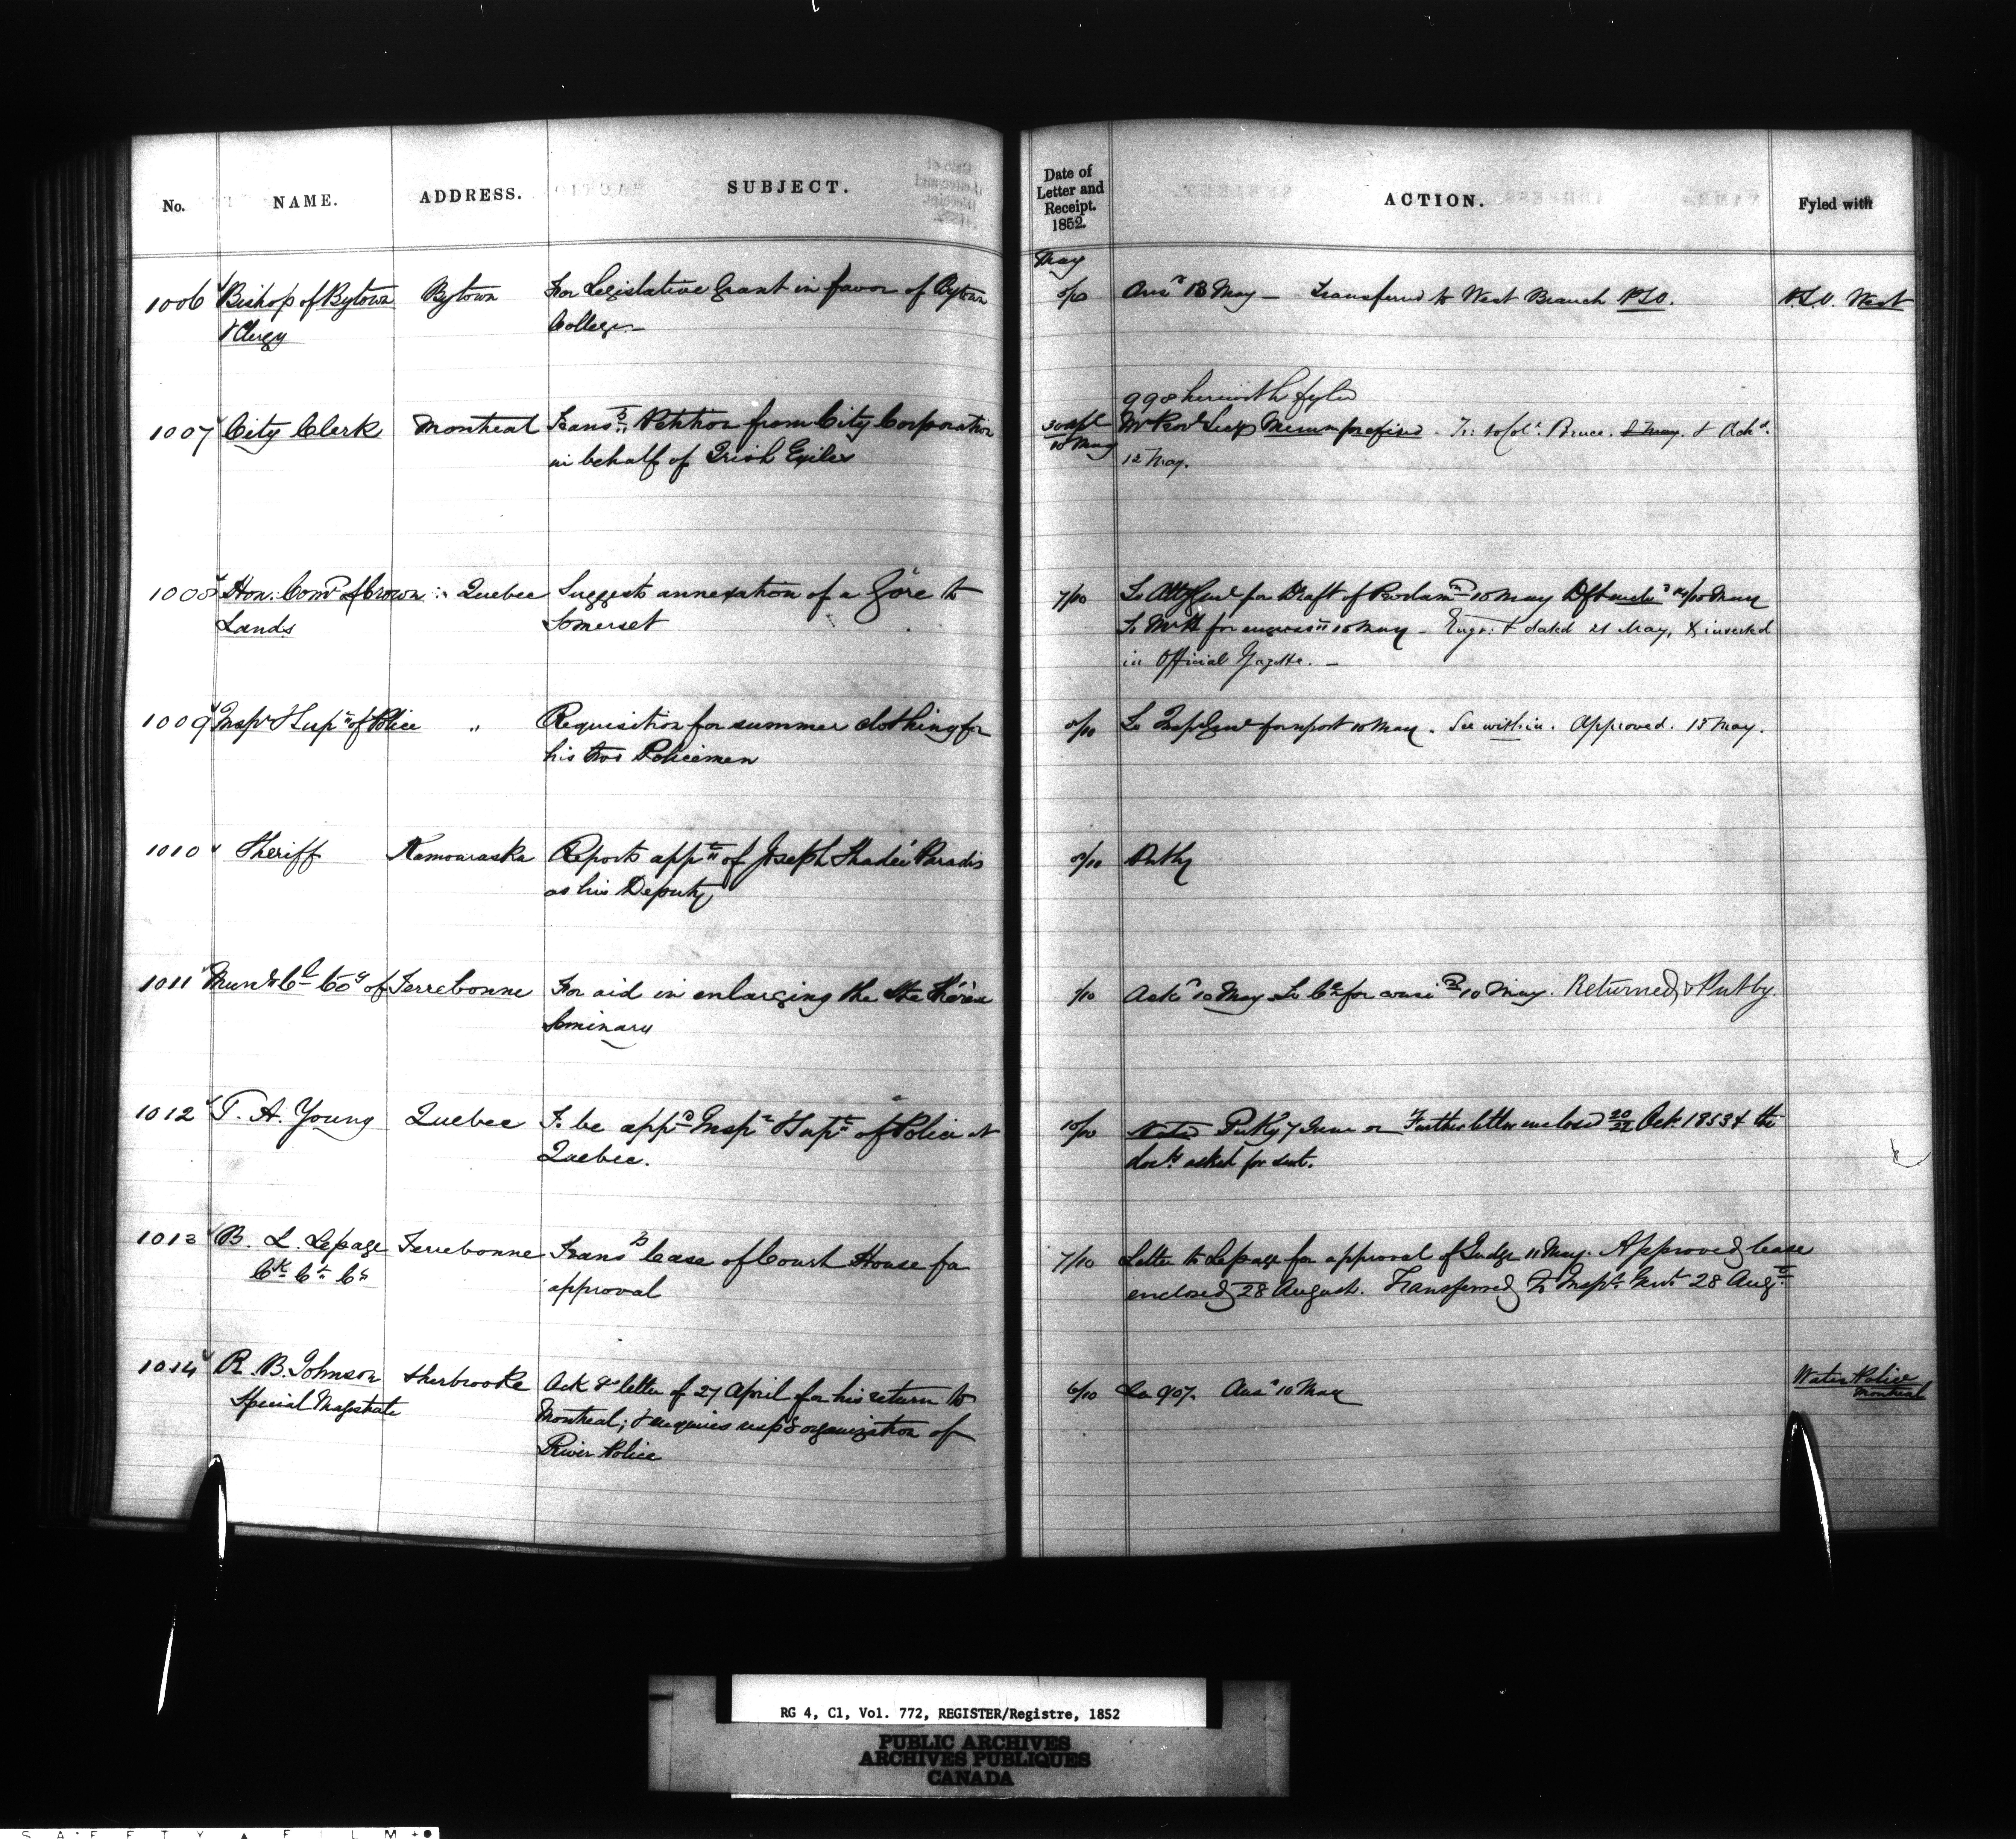 No. NAME. ADDRESS. SUBJECT. Date of Letter and Receipt. 1852. ACTION. Fyled with
May
1006 Bishop of Bytown Bytown For Legislative Grant in favor of Bytown 8/10 Ansd 13 May — Transferred to West Branch P.S.O. P.S.O. West
& Clergy College —
998 herewith fyled
1007 City Clerk Montreal Transg Petition from City Corporation 30 Apl Mr Provl Secy Memm prefixed. Tr: to Col: Bruce. & Ackd.
in behalf of Irish Exiles 10 May 12 May.
1008 Hon. Comr of Crown Quebec Suggests annexation of a Gore to 7/10 To Atty Genl for Draft of Proclamn 10 May
Lands Somerset To Mr H for engrosst 18 May — Engr: & dated 21 May, & inserted
in Official Gazette. —
1009 Inspr & Supt of Police " Requisition for summer clothing for 8/10 To Insp Genl for report 10 May. See within. Approved. 18 May.
his two Policemen
1010 Sheriff Kamouraska Reports appt of Joseph Thadée Paradis 8/10 Put by
as his Deputy
1011 Munl Cl Coy of Terrebonne For aid in enlarging the Ste Thérèse /10 Ackd 10 May To Ce for consn 10 May. Returned, & Put by.
Seminary
1012 T. A. Young Quebec To be appd Inspr & Supt of Police at 10/10 Noted Put by 7 June Further letter enclosed 20/21 Oct. 1853 & the
Quebec. docts asked for sent.
1013 B. L. Lepage Terrebonne Transg lease of Court House for 7/10 Letter to Lepage for approval of Judge 11 May. Approved, lease
Ck Ct Ct approval enclosed, 28 August. Transferred to Inspr Genl 28 Augt.
1014 R. B. Johnson Sherbrooke Ack g letter of 27 April for his return to 6/10 La 907. Ansd 10 May Water Police
Special Magistrate Montreal; & enquires respg organization of Montreal
River Police
RG 4, C1, Vol. 772, REGISTER/Registre, 1852
PUBLIC ARCHIVES
ARCHIVES PUBLIQUES
CANADA
SAFETY FILM